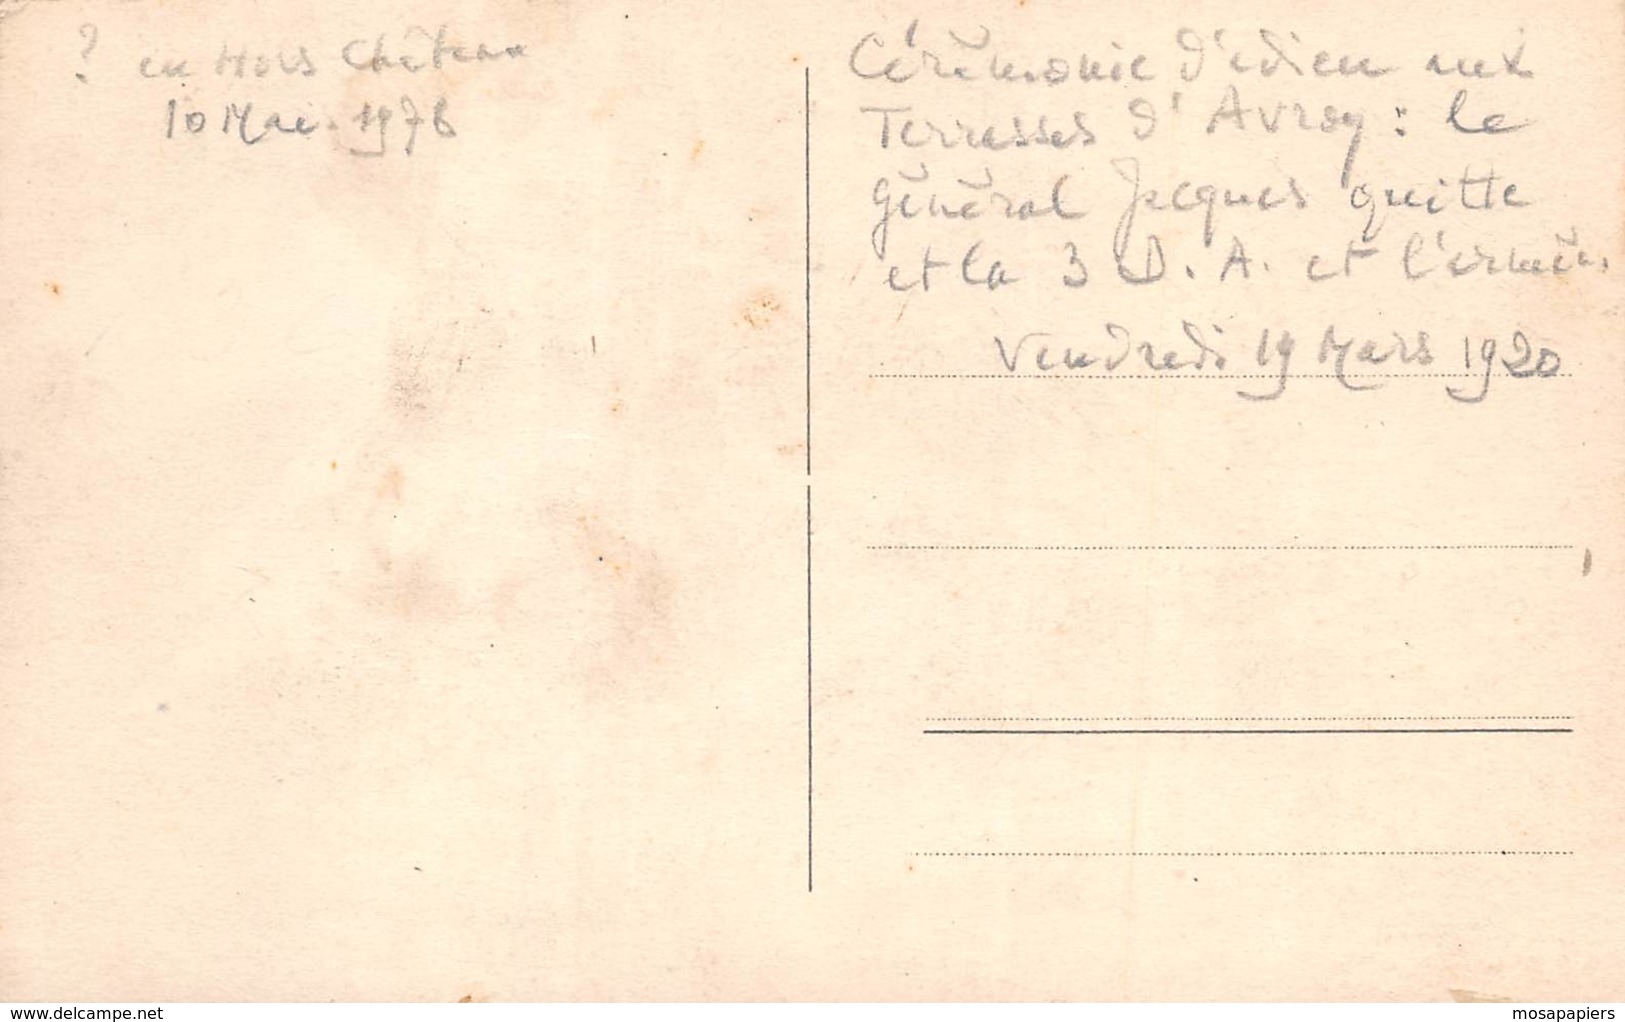 ? en Hors Château
10 Mai 1976
Cérémonie d'adieu aux
Terrasses d'Avroy : le
général Jacques quitte
et la 3 D.A. et l'armée.
Vendredi 19 Mars 1920
www.delcampe.net
mosapapiers